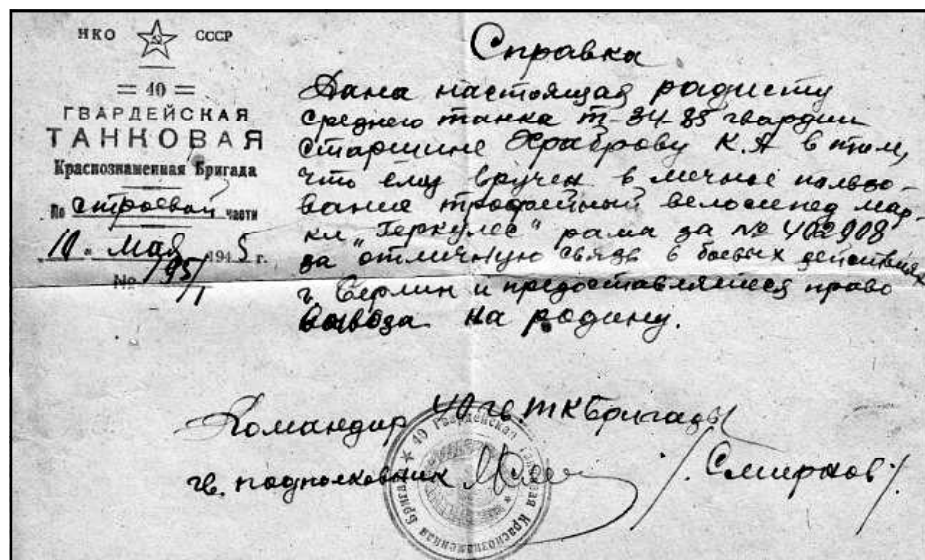 НКО СССР
= 40 =
ГВАРДЕЙСКАЯ
ТАНКОВАЯ
Краснознаменная Бригада
По строевой части
"10" мая 1945 г.
№ 195/1
Справка
Дана настоящая радисту
среднего танка Т-34 85 гвардии
старшине Храброву К.А в том,
что ему вручен в личное пользо-
вание трофейный велосипед мар-
ки "Геркулес" рама за № 402908
за отличную связь в боевых действиях
г. Берлин и предоставляется право
вывоза на родину.
Командир 40 гв. ТК Бригады
гв. подполковник /Смирнов/
40 Гвардейская Танковая Краснознаменная Бригада